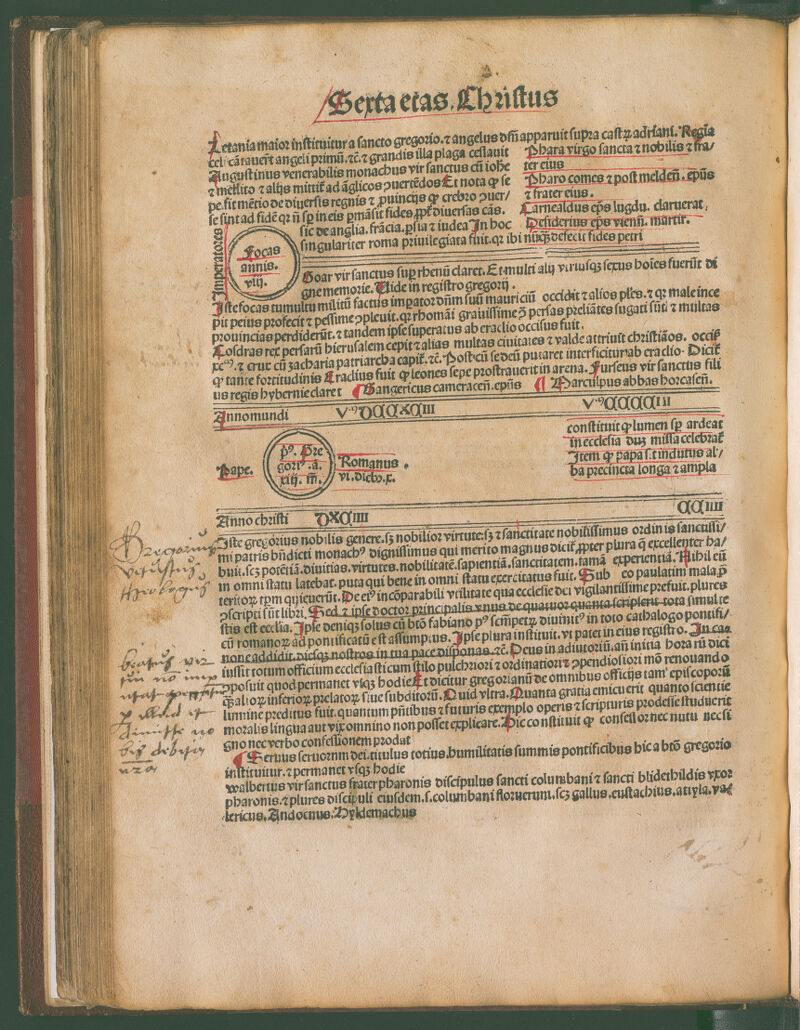 Sexta etas. Christus
Letania maior instituitur a sancto gregorio. ⁊ angelus dñi apparuit supra castꝝ adriani. Regia
celi cãtauert angeli primũ. ⁊c̃. ⁊ grandis illa plaga cessauit
Augustinus venerabilis monachus vir sanctus cũ iohe
⁊ mellito ⁊ alijs mittit ad ãglicos ɔuertẽdos Et nota ꝙ se
pe fit mẽtio de diuersis regnis ⁊ ꝓuincijs ꝙ crebro ɔuer/
se sint ad fidẽ qꝛ ñ sꝑ in eis ꝑmãsit fides ꝓpt̃ diuersas cãs.
sic de anglia. frãcia. ꝑsia ⁊ iudea In hoc
singulariter roma priuilegiata fuit. qꝛ ibi nũqꝫ defecit fides petri
Phara virgo sancta ⁊ nobilis ⁊ fra/
ter eius
Pharo comes ⁊ post melden̄. ep̃us
⁊ frater eius.
Carnealdus ep̃s lugdu. claruerat,
Desiderius ep̃s vienñ. martir.
Imperatores
Focas
annis.
viij.
Goar vir sanctus suꝑ rhenũ claret. Et multi alij vtriusqꝫ sexus hoies fuerũt di
gne memorie. Vide in registro gregorij.
Iste focas tumultu militũ factus impator dñm suũ mauriciũ occidit ⁊ alios ples. ⁊ qꝛ male ince
pit peius profecit ⁊ pessime ɔpleuit. qꝛ rhomãi grauissime ꝯ persas preliãtes fugati sũt. ⁊ multas
prouincias perdiderũt. ⁊ tandem ipse superatus ab eraclio occisus fuit.
Cosdras rex persarũ hierusalem cepit ⁊ alias multas ciuitates ⁊ valde attriuit christiãos. occiſ̃
xcᵐ. ⁊ crux cũ zacharia patriarcha capit̃. ⁊c̃. Postꝙ̃ se deũ putaret interficitur ab eraclio. Dicit̃
ꝙ tante fortitudinis Eraclius fuit ꝙ leones sepe prostrauerit in arena. Furseus vir sanctus fili
us regis hybernie claret ¶ Gangericus cameracen̄. ep̃us ¶ Marculpus abbas horcasen̄.
Anno mundi VᵐDCCXCIII VᵐCCCCIII
Pape.
pꝰ. Gre
goriꝰ .a.
xiij. m̃.
Romanus.
vi. dieb9. x.
constituit ꝙ lumen sꝑ ardeat
in ecclesia dum missa celebrat̃
Item ꝙ papa s. t indutus al/
ba precincta longa ⁊ ampla
Anno christi DXCIIII CCIIII
Iste gregorius nobilis genere. sꝫ nobilior virtute. sꝫ ⁊ sanctitate nobilissimus ordinis sanctissi/
mi patris bñdicti monachꝰ dignissimus qui merito magnus dicit̃ ꝓpter plura ꝙ excellenter ha/
buit. scꝫ potẽtiã. diuitias. virtutes. nobilitatẽ. sapientiã. sanctitatem. famã experientiã. Nihil eũ
in omni statu latebat. puta qui bene in omni statu exercitatus fuit. Sub eo paulatim mala ꝑ
teritoꝝ tpm quieuerũt. De eiꝰ incõparabili vtilitate qua ecclesie dei vigilantissime prefuit. plures
ɔscripti sũt libri. Sed ⁊ ipse doctor principalis vnus de quatuor quanta scripserit tota simul te
stis est ecclia. Ipse deniqꝫ solus cũ btõ fabiano pꝰ sc̃m petꝝ diuinitꝰ in toto cathalogo pontifi/
cũ romanoꝝ ad pontificatũ est assumptus. Ipse plura instituit. vt patet in eius registro. In can
none addidit. diesqꝫ nostros in tua pace disponas. ⁊c̃. Deus in adiutoriũ. añ initia hora rũ dici
iussit totum officium ecclesiasticum stilo pulchriori ⁊ ordinatiori ⁊ ɔpendiosiori mõ renouando
ɔposuit quod permanet vsqꝫ hodie Et dicitur gregorianũ de omnibus officijs tam episcoporũ
qꝫ̃ alioꝝ inferioꝝ prelatoꝝ siue subditorũ. Quid vltra. Quanta gratia emicuerit quanto scientie
lumine preditus fuit. quantum pñtibus ⁊ futuris exemplo operis ⁊ scripturis prodesse studuerit
moralis lingua aut vix omnino non posset explicare. Hic constituit ꝙ confessor nec nutu nec si
gno nec verbo confessionem prodat
¶ Seruus seruorum dei. titulus totius humilitatis summis pontificibus hic a btõ gregorio
instituitur. ⁊ permanet vsqꝫ hodie
walbertus vir sanctus frater pharonis discipulus sancti columbani ⁊ sancti blidethildis vxor
pharonis. ⁊ plures discipuli eiusdem .s. columbani floruerunt. scꝫ gallus. eustachius. attyla. va/
lericus. Andoenus. Hyldemachus
Gregorius
theologus